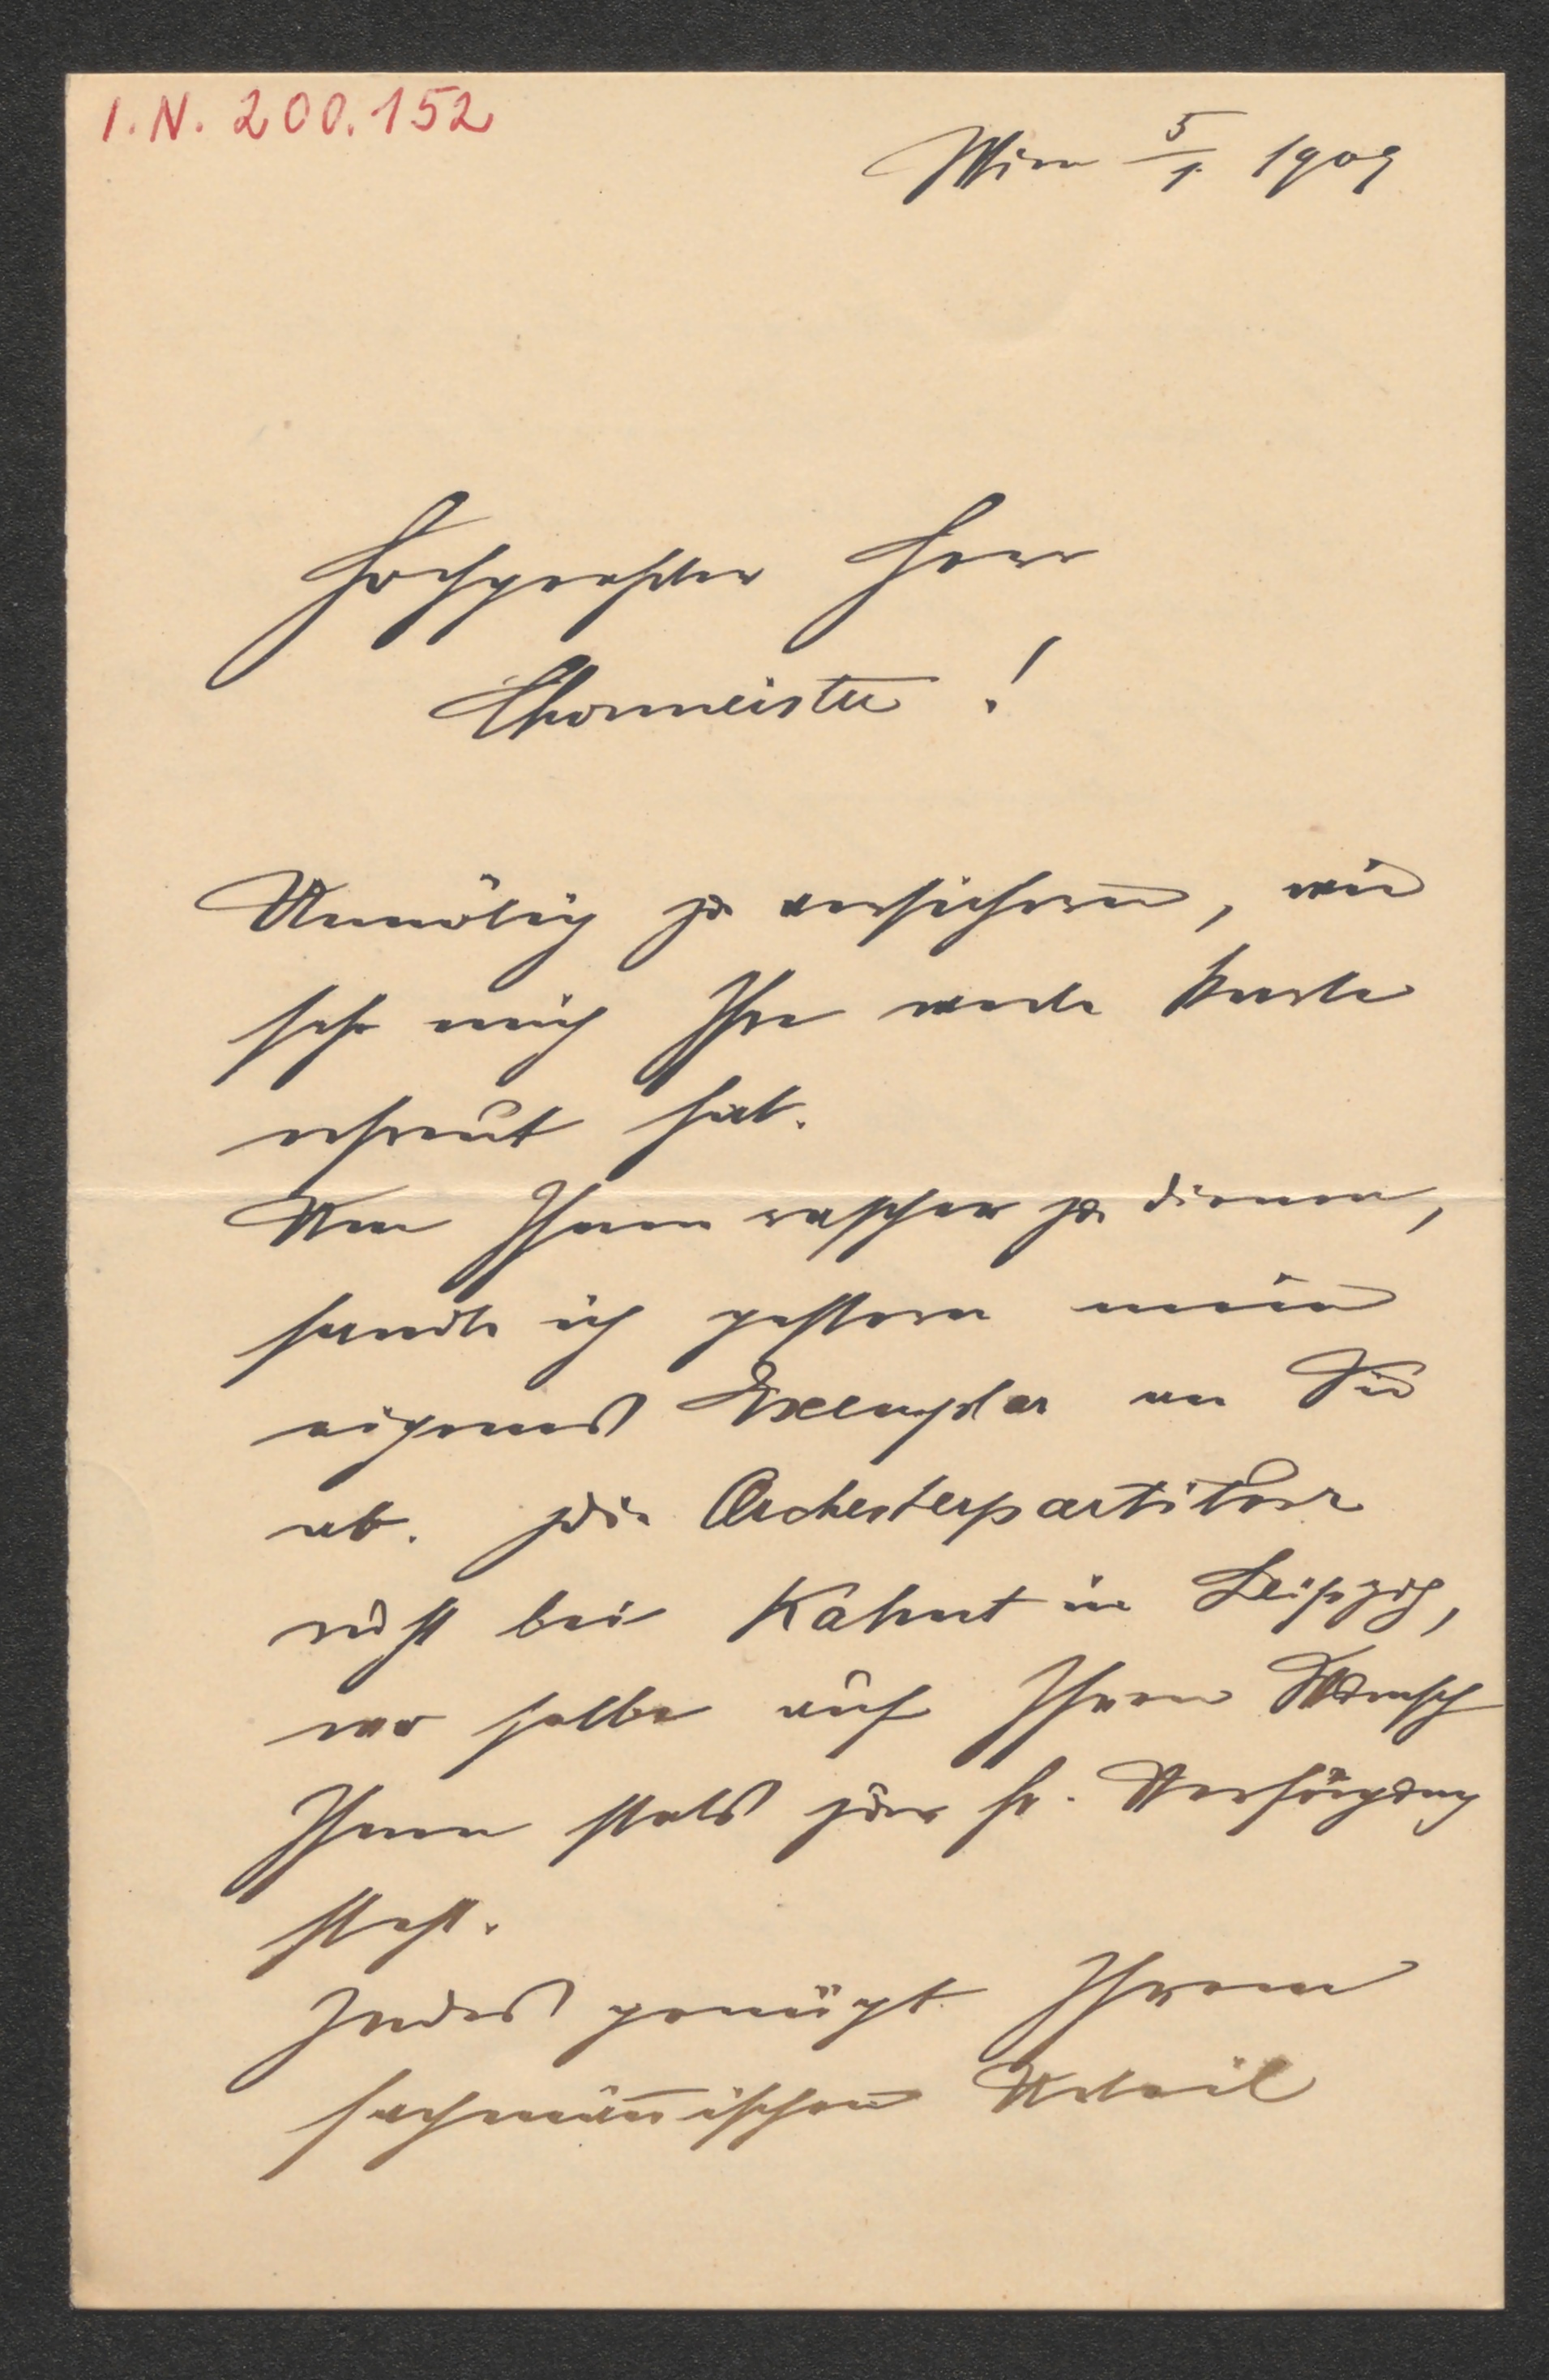 I.N. 200.152
Wien 5/1 1909
Hochgeehrter Herr
Chormeister !
Unnötig zu versichern, wie
sehr mich Ihre werte Karte
erfreut hat.
Um Ihnen rascher zu dienen,
sandte ich gestern mein
eigenes Exemplar an Sie
ab. Die Orchesterpartitur
ruht bei Kahnt in Leipzig,
wo selbe auf Ihren Wunsch
Ihnen stets zur h. Verfügung
steht.
Indes genügt Ihrem
fachmännischen Urteil